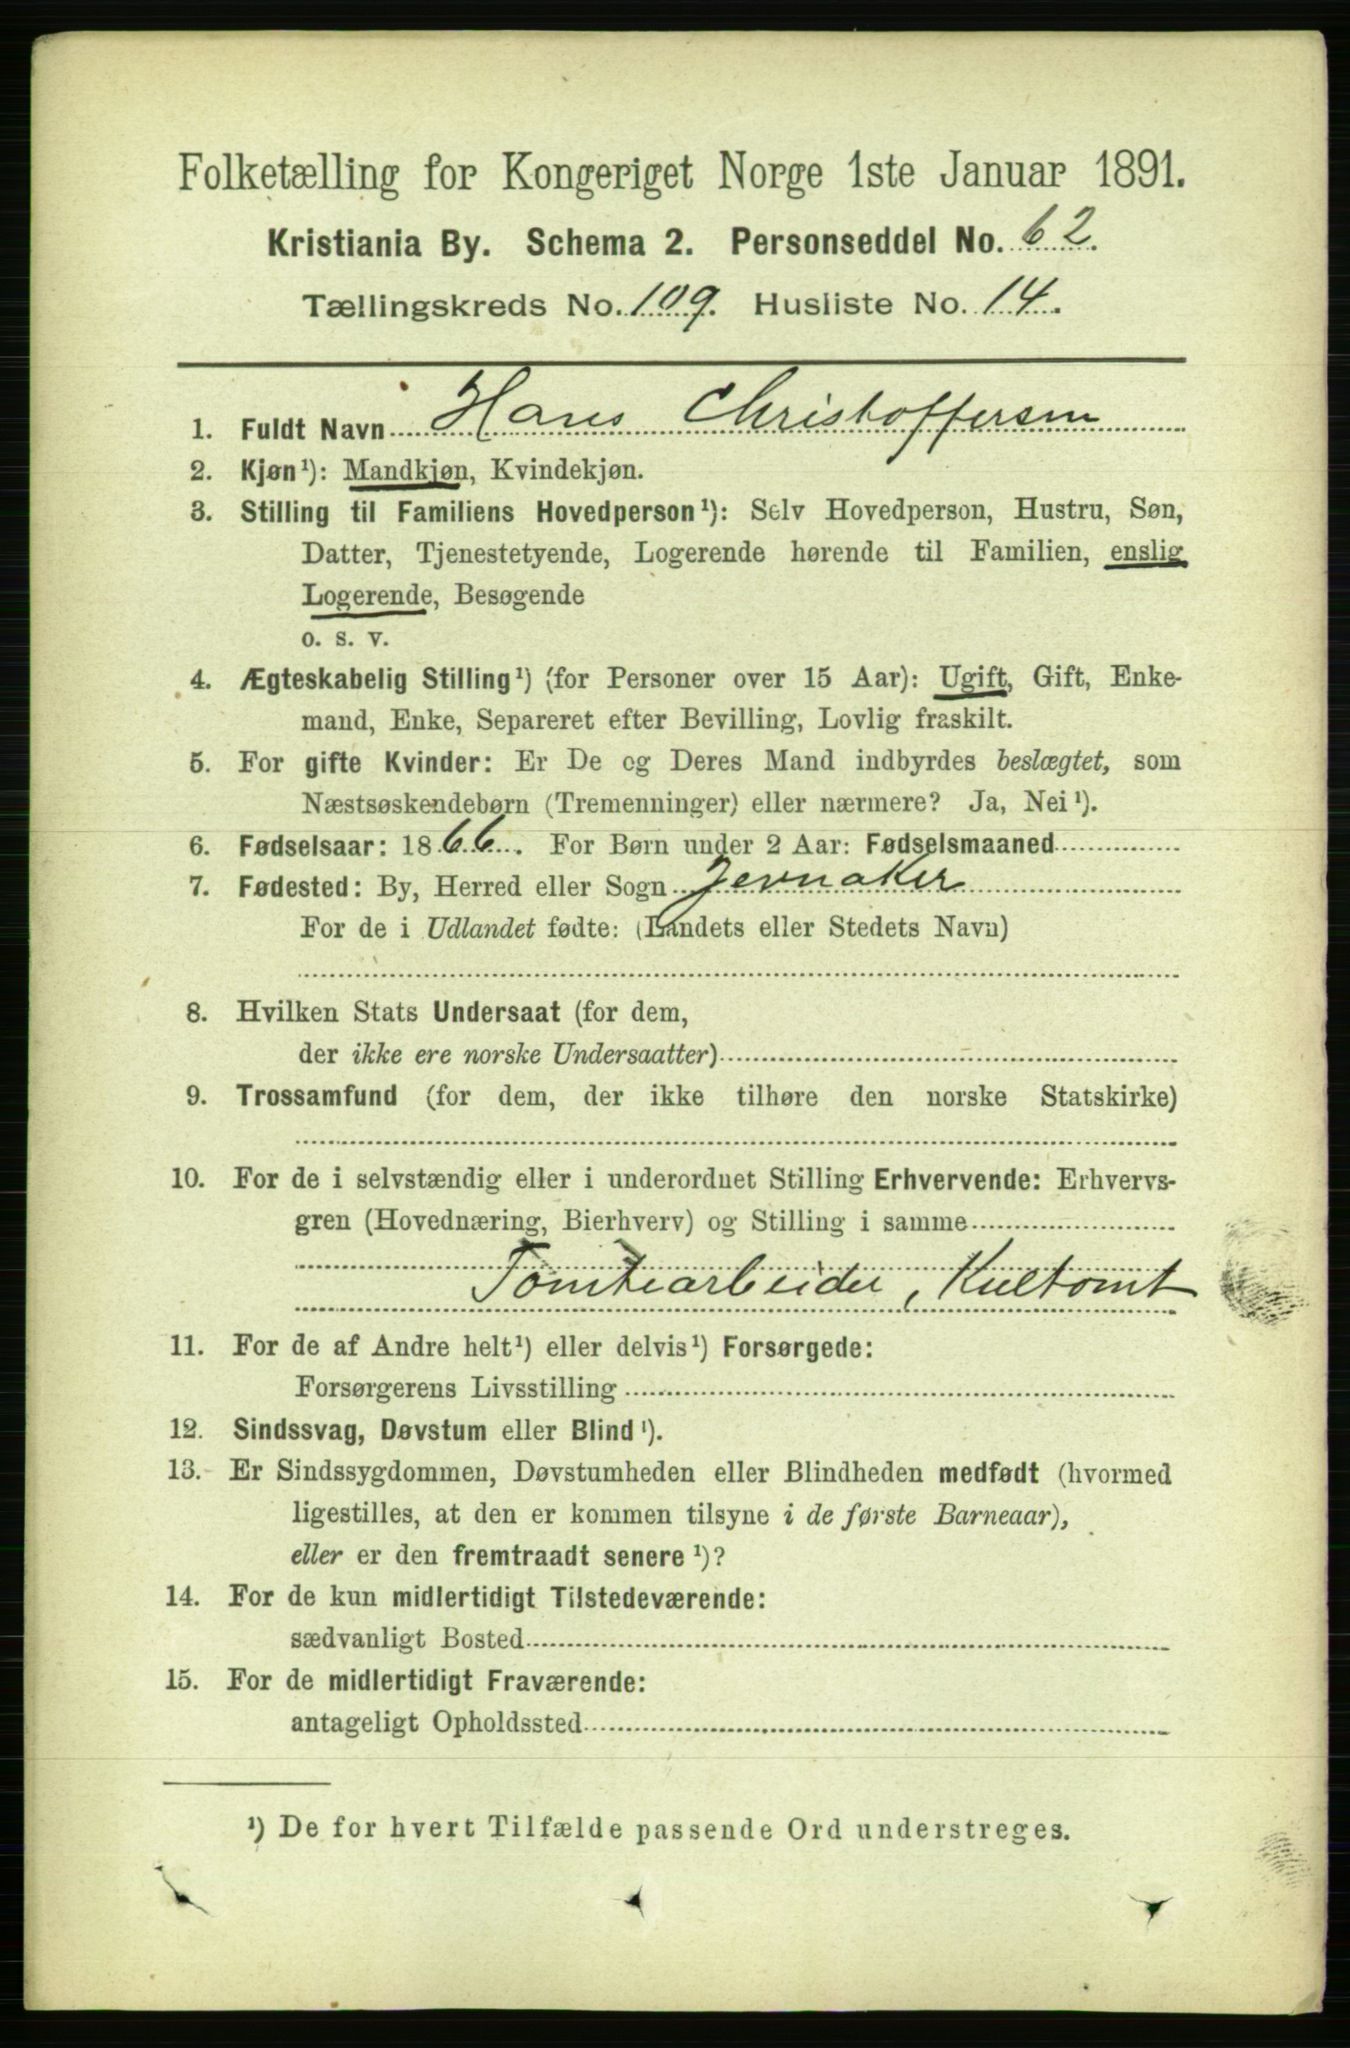 Folketælling for Kongeriget Norge 1ste Januar 1891.
Kristiania By. Schema 2. Personseddel No. 62.
Tællingskreds No. 109. Husliste No. 14.
1. Fuldt Navn Hans Christoffersen
2. Kjøn¹): Mandkjøn, Kvindekjøn.
3. Stilling til Familiens Hovedperson¹): Selv Hovedperson, Hustru, Søn,
Datter, Tjenestetyende, Logerende hørende til Familien, enslig
Logerende, Besøgende
o. s. v.
4. Ægteskabelig Stilling¹) (for Personer over 15 Aar): Ugift, Gift, Enke-
mand, Enke, Separeret efter Bevilling, Lovlig fraskilt.
5. For gifte Kvinder: Er De og Deres Mand indbyrdes beslægtet, som
Næstsøskendebørn (Tremenninger) eller nærmere? Ja, Nei¹).
6. Fødselsaar: 1866. For Børn under 2 Aar: Fødselsmaaned
7. Fødested: By, Herred eller Sogn Jevnaker
For de i Udlandet fødte: (Landets eller Stedets Navn)
8. Hvilken Stats Undersaat (for dem,
der ikke ere norske Undersaatter)
9. Trossamfund (for dem, der ikke tilhøre den norske Statskirke)
10. For de i selvstændig eller i underordnet Stilling Erhvervende: Erhvervs-
gren (Hovednæring, Bierhverv) og Stilling i samme
Tomtearbeider, Kultomt
11. For de af Andre helt¹) eller delvis¹) Forsørgede:
Forsørgerens Livsstilling
12. Sindssvag, Døvstum eller Blind¹).
13. Er Sindssygdommen, Døvstumheden eller Blindheden medfødt (hvormed
ligestilles, at den er kommen tilsyne i de første Barneaar),
eller er den fremtraadt senere¹)?
14. For de kun midlertidigt Tilstedeværende:
sædvanligt Bosted
15. For de midlertidigt Fraværende:
antageligt Opholdssted
¹) De for hvert Tilfælde passende Ord understreges.